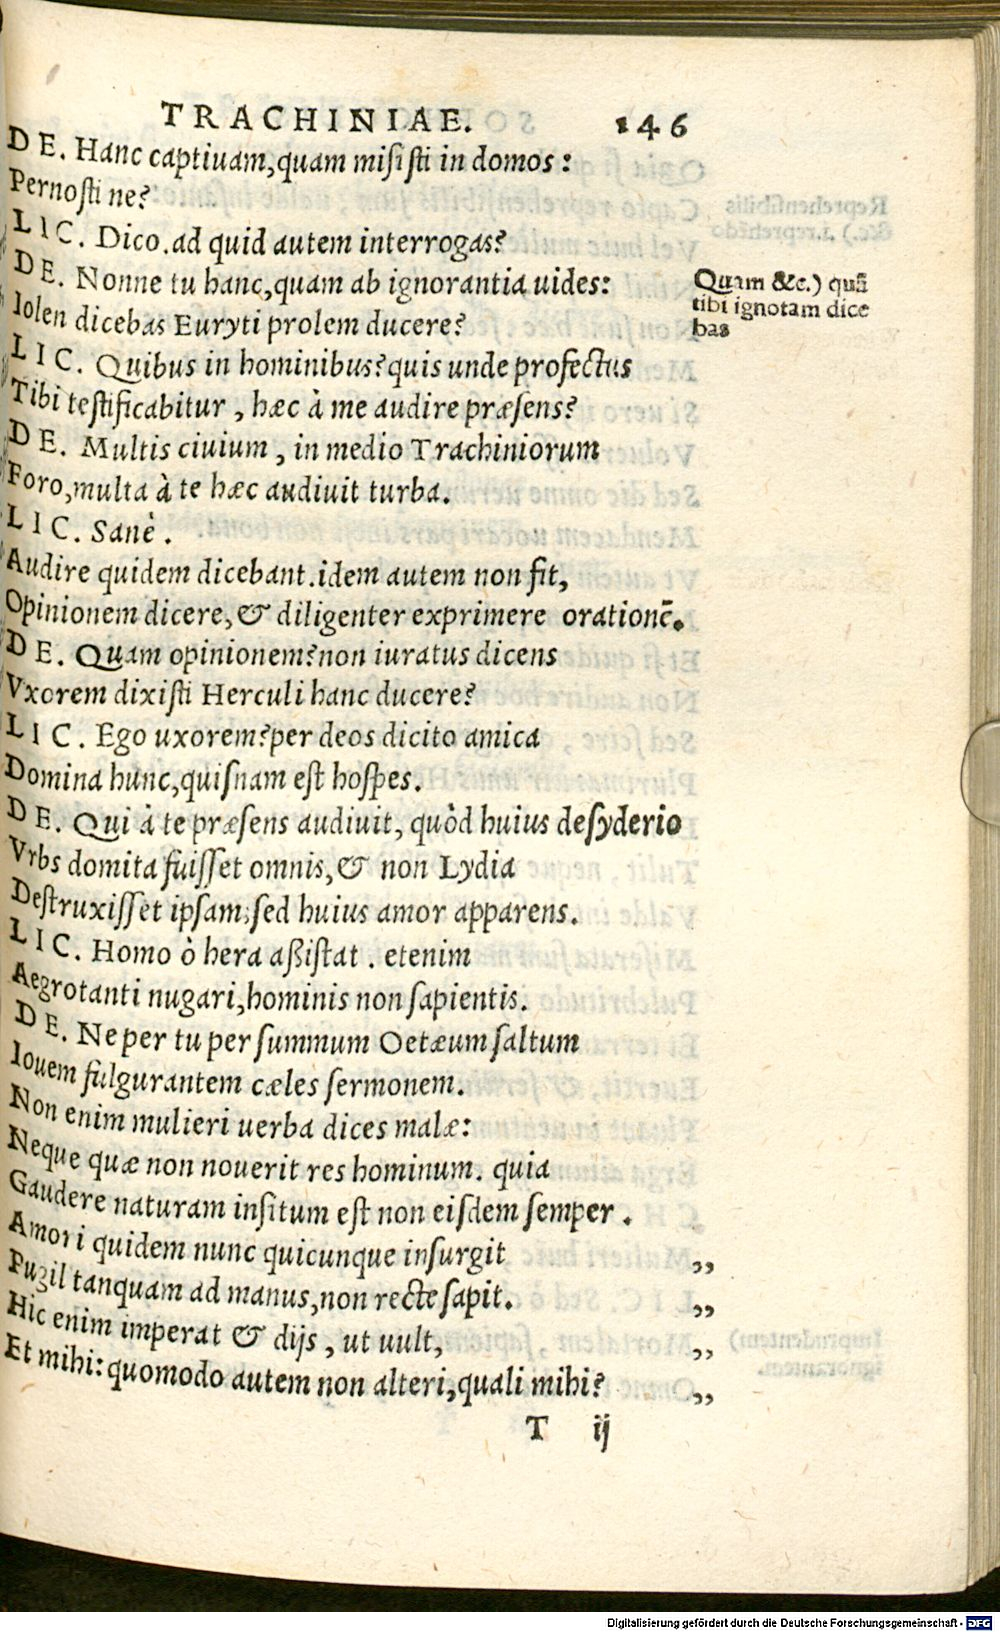 TRACHINIAE. 146
DE. Hanc captiuam, quam misisti in domos:
Pernosti ne?
LIC. Dico. ad quid autem interrogas?
DE. Nonne tu hanc, quam ab ignorantia uides:
Iolen dicebas Euryti prolem ducere?
LIC. Quibus in hominibus? quis unde profectus
Tibi testificabitur, hæc à me audire præsens?
DE. Multis ciuium, in medio Trachiniorum
Foro, multa à te hæc audiuit turba.
LIC. Sanè.
Audire quidem dicebant. idem autem non fit,
Opinionem dicere, & diligenter exprimere orationẽ.
DE. Quam opinionem? non iuratus dicens
Vxorem dixisti Herculi hanc ducere?
LIC. Ego uxorem? per deos dicito amica
Domina hunc, quisnam est hospes.
DE. Qui à te præsens audiuit, quòd huius desyderio
Vrbs domita fuisset omnis, & non Lydia
Destruxisset ipsam; sed huius amor apparens.
LIC. Homo ò hera aßistat. etenim
Aegrotanti nugari, hominis non sapientis.
DE. Ne per tu per summum Oetæum saltum
Iouem fulgurantem cæles sermonem.
Non enim mulieri uerba dices malæ:
Neque quæ non nouerit res hominum. quia
Gaudere naturam insitum est non eisdem semper.
Amori quidem nunc quicunque insurgit „
Pugil tanquam ad manus, non recte sapit. „
Hic enim imperat & dijs, ut uult, „
Et mihi: quomodo autem non alteri, quali mihi? „
T ij
Quam &c.) quã
tibi ignotam dice
bas
Digitalisierung gefördert durch die Deutsche Forschungsgemeinschaft - DFG